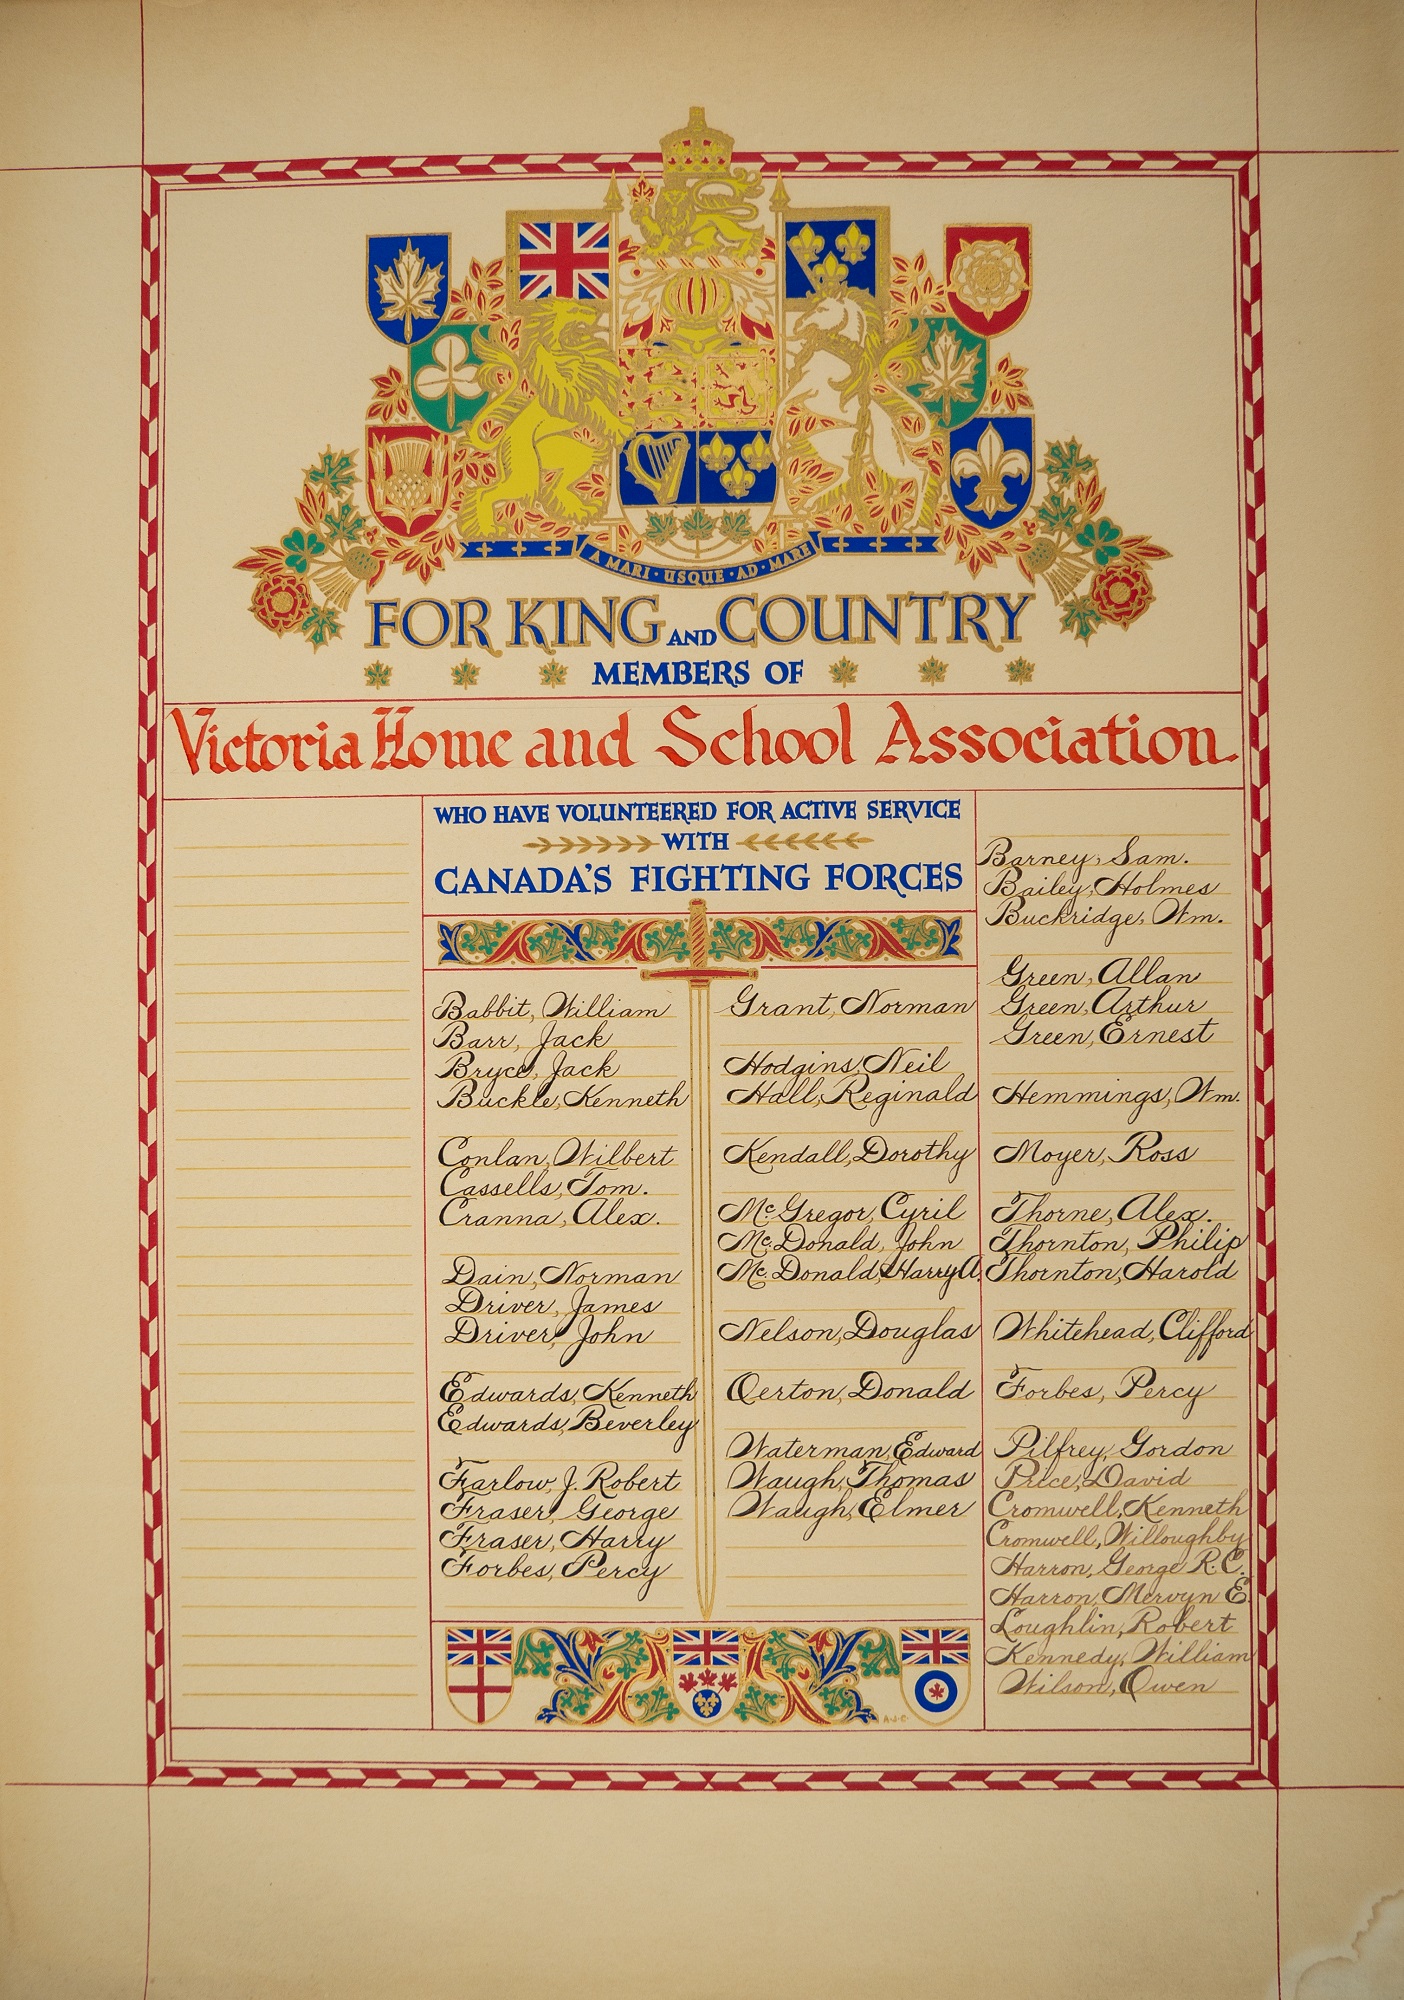 A MARI · USQUE · AD · MARE
FOR KING AND COUNTRY
MEMBERS OF
Victoria Home and School Association.
WHO HAVE VOLUNTEERED FOR ACTIVE SERVICE
WITH
CANADA'S FIGHTING FORCES
Babbit, William
Barr, Jack
Bryce, Jack
Buckle, Kenneth
Conlan, Wilbert
Cassells, Tom.
Cranna, Alex.
Dain, Norman
Driver, James
Driver, John
Edwards, Kenneth
Edwards, Beverley
Farlow, J. Robert
Fraser, George
Fraser, Harry
Forbes, Percy
Grant, Norman
Hodgins, Neil
Hall, Reginald
Kendall, Dorothy
McGregor, Cyril
Mc.Donald, John
Mc.Donald, Harry A.
Nelson, Douglas
Oerton, Donald
Waterman, Edward
Waugh, Thomas
Waugh, Elmer
Barney, Sam.
Bailey, Holmes
Buckridge, Wm.
Green, Allan
Green, Arthur
Green, Ernest
Hemmings, Wm.
Moyer, Ross
Thorne, Alex.
Thornton, Philip
Thornton, Harold
Whitehead, Clifford
Forbes, Percy
Pilfrey, Gordon
Price, David
Cromwell, Kenneth
Cromwell, Willoughby
Harron, George R.C.
Harron, Mervyn E.
Loughlin, Robert
Kennedy, William
Wilson, Owen
A·J·C·